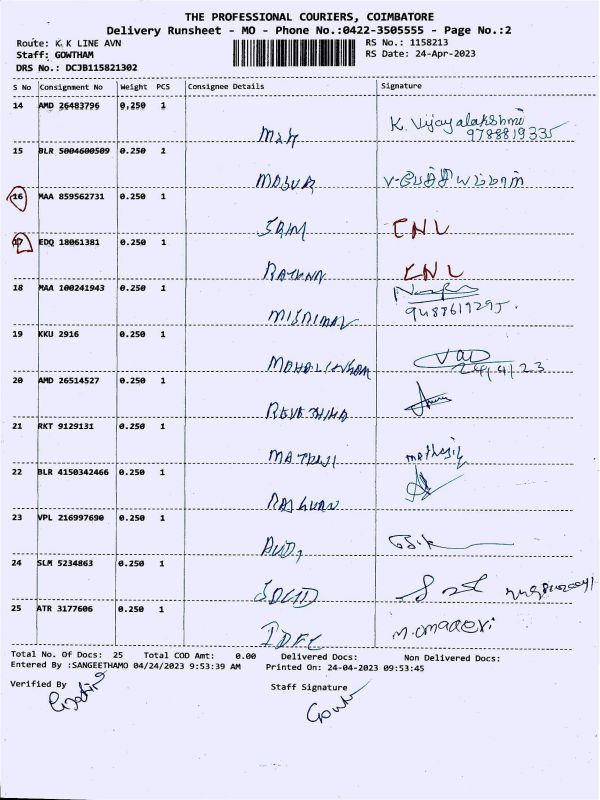 THE PROFESSIONAL COURIERS, COIMBATORE
Delivery Runsheet - MO - Phone No.:0422-3505555 - Page No.:2
Route: K K LINE AVN RS No.: 1158213
Staff: GOWTHAM RS Date: 24-Apr-2023
DRS No.: DCJB115821302
S No Consignment No Weight PCS Consignee Details Signature
14 AMD 26483796 0.250 1
K. Vijayalakshmi
9788819335
15 BLR 5004600509 0.250 1
16 MAA 859562731 0.250 1
CNL
17 EDQ 18061381 0.250 1
RATHNA CNL
18 MAA 100241943 0.250 1
9488619295.
19 KKU 2916 0.250 1
MAHALINGAM 24/4/23
20 AMD 26514527 0.250 1
21 RKT 9129131 0.250 1
22 BLR 4150342466 0.250 1
23 VPL 216997690 0.250 1
24 SLM 5234863 0.250 1
SOLID
25 ATR 3177606 0.250 1
M. Omadevi
Total No. Of Docs: 25 Total COD Amt: 0.00 Delivered Docs: Non Delivered Docs:
Entered By :SANGEETHAMO 04/24/2023 9:53:39 AM Printed On: 24-04-2023 09:53:45
Verified By Staff Signature